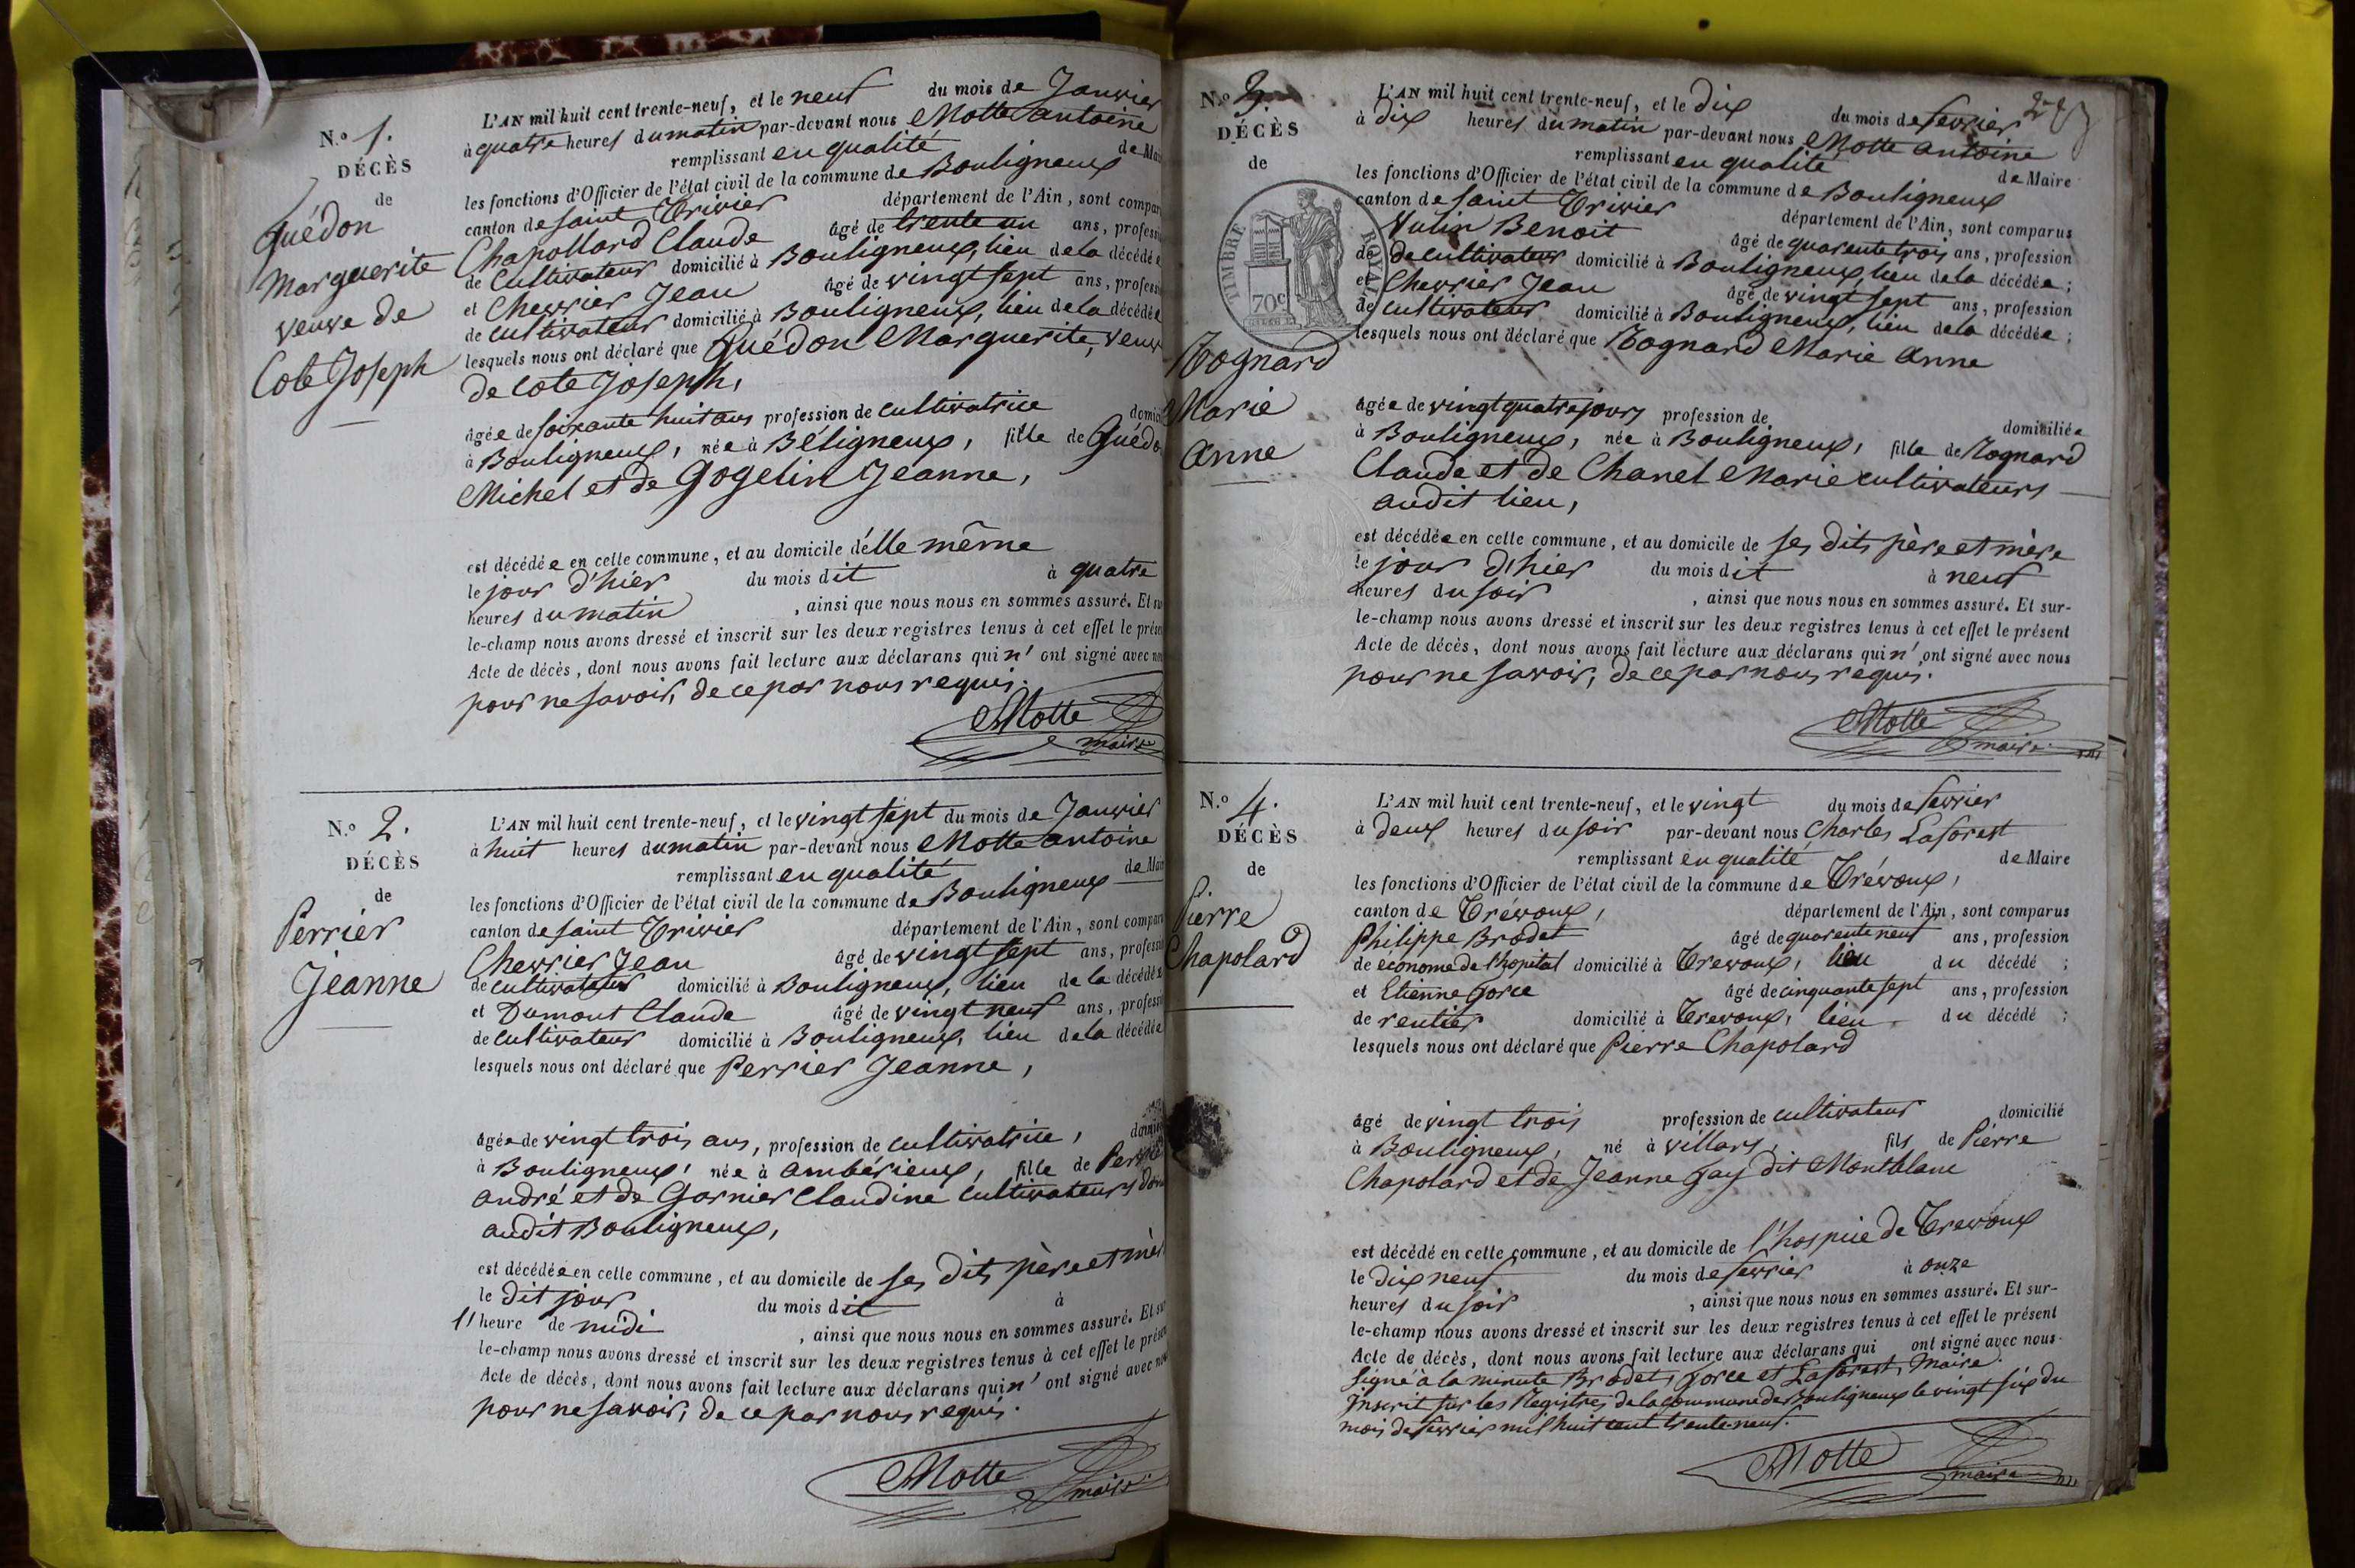 N.o 1.
DÉCÈS
de
Guédon
Marguerite
veuve de
Cote Joseph
L'AN mil huit cent trente-neuf, et le neuf du mois de Janvier
à quatre heures du matin par-devant nous Motte antoine
remplissant en qualité de Mai
les fonctions d'Officier de l'état civil de la commune de Bouligneux
canton de saint Trivier département de l'Ain, sont compar
Chapollard Claude âgé de trente un ans, professi
de Cultivateur domicilié à Bouligneux, lieu de la décédée
et Chevrier Jean âgé de vingt sept ans, profess
de cultivateur domicilié à Bouligneux, lieu de la décédée
lesquels nous ont déclaré que Guédon Marguerite, veuv
de Cote Joseph,
âgée de soixante huit ans profession de cultivatrice domici
à Bouligneux, née à Béligneux, fille de Guédo
Michel et de Gogelin Jeanne,
est décédée en celle commune, et au domicile d'élle même
le jour d'hier du mois dit à quatre
heures du matin , ainsi que nous nous en sommes assuré. Et su
le-champ nous avons dressé et inscrit sur les deux registres tenus à cet effet le présen
Acte de décès, dont nous avons fait lecture aux déclarans qui n' ont signé avec nou
pour ne savoir, de ce par nous requis.
Motte
maire
N.o 2.
DÉCÈS
de
Perrier
Jeanne
L'AN mil huit cent trente-neuf, et le vingt sept du mois de Janvier
à huit heures du matin par-devant nous Motte antoine
remplissant en qualité de Mair
les fonctions d'Officier de l'état civil de la commune de Bouligneux
canton de saint Trivier département de l'Ain, sont compar
Chevrier Jean âgé de vingt sept ans, professi
de cultivateur domicilié à Bouligneux, lieu de la décédée
et Dumont Claude âgé de vingt neuf ans, profess
de cultivateur domicilié à Bouligneux, lieu de la décédée
lesquels nous ont déclaré que Perrier Jeanne,
âgée de vingt trois ans, profession de cultivatrice, domici
à Bouligneux, née à ambérieux, fille de Perrier
andré et de Garnier Claudine cultivateurs dom
audit Bouligneux,
est décédée en celle commune, et au domicile de ses dits père et mère
le dit jour du mois dit à
1 heure de midi , ainsi que nous nous en sommes assuré. Et sur
le-champ nous avons dressé et inscrit sur les deux registres tenus à cet effet le présen
Acte de décès, dont nous avons fait lecture aux déclarans qui n' ont signé avec nou
pour ne savoir, de ce par nous requis.
Motte
maire
N.o 3.
DÉCÈS
de
TIMBRE ROYAL
70c
Rognard
Marie
Anne
L'AN mil huit cent trente-neuf, et le dix du mois de fevrier
à dix heures du matin par-devant nous Motte antoine
remplissant en qualité de Maire
les fonctions d'Officier de l'état civil de la commune de Bouligneux
canton de saint Trivier département de l'Ain, sont comparus
Vulin Benoit âgé de quarente trois ans, profession
de de cultivateur domicilié à Bouligneux, lieu de la décédée ;
et Chevrier Jean âgé de vingt sept ans, profession
de cultivateur domicilié à Bouligneux, lieu de la décédée ;
lesquels nous ont déclaré que Rognard Marie Anne
âgée de vingt quatre jours profession de domiciliée
à Bouligneux, née à Bouligneux, fille de Rognard
Claude et de Chanel Marie cultivateurs
audit lieu,
est décédée en celle commune, et au domicile de ses dits père et mère
le jour d'hier du mois dit à neuf
heures du soir , ainsi que nous nous en sommes assuré. Et sur-
le-champ nous avons dressé et inscrit sur les deux registres tenus à cet effet le présent
Acte de décès, dont nous avons fait lecture aux déclarans qui n' ont signé avec nous
pour ne savoir, de ce par nous requis.
Motte
maire
N.o 4.
DÉCÈS
de
Pierre
Chapolard
L'AN mil huit cent trente-neuf, et le vingt du mois de fevrier
à deux heures du soir par-devant nous Charles Laforest
remplissant en qualité de Maire
les fonctions d'Officier de l'état civil de la commune de Trévoux,
canton de Trévoux, département de l'Ain, sont comparus
Philippe Brodet âgé de quarente neuf ans, profession
de économe de l'hopital domicilié à Trevoux, lieu du décédé ;
et Etienne Gorce âgé de cinquante sept ans, profession
de rentier domicilié à Trevoux, lieu du décédé ;
lesquels nous ont déclaré que Pierre Chapolard
âgé de vingt trois profession de cultivateur domicilié
à Bouligneux, né à Villars, fils de Pierre
Chapolard et de Jeanne Gay dit Montblanc
est décédé en celle commune, et au domicile de l'hospice de Trevoux
le dix neuf du mois de fevrier à onze
heures du soir , ainsi que nous nous en sommes assuré. Et sur-
le-champ nous avons dressé et inscrit sur les deux registres tenus à cet effet le présent
Acte de décès, dont nous avons fait lecture aux déclarans qui ont signé avec nous.
Signé à la minute Brodet, Gorce et Laforest, Maire.
Inscrit sur les Registres de la Commune de Bouligneux le vingt six du
mois de fevrier mil huit cent trente-neuf.
Motte
maire